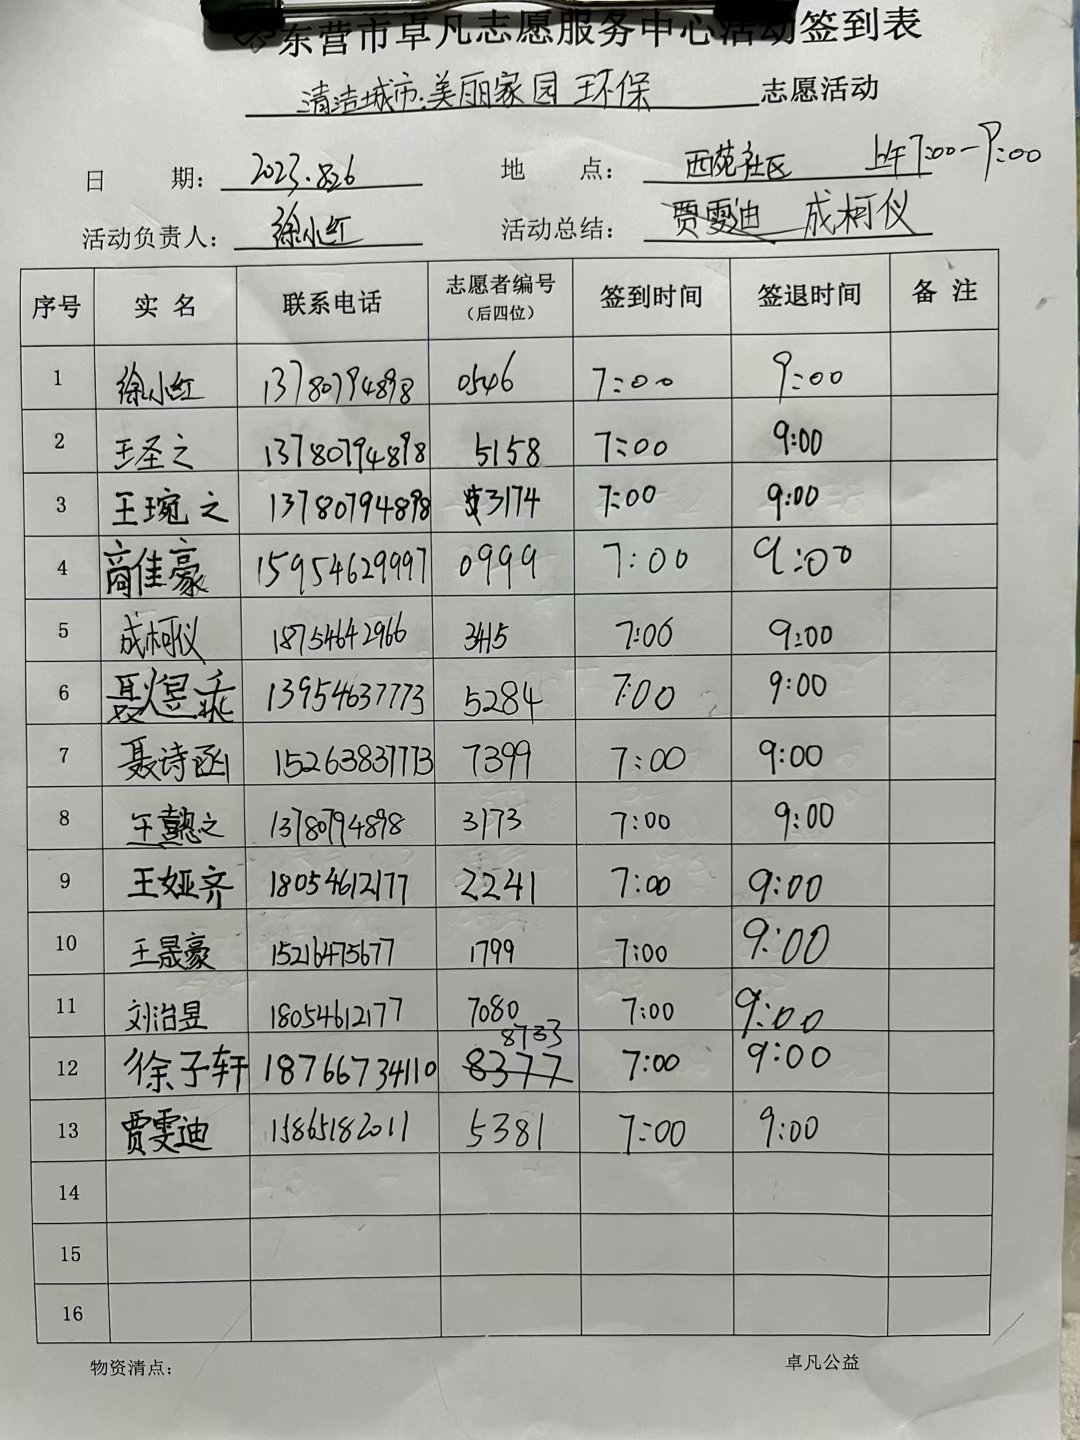 东营市卓凡志愿服务中心活动签到表
清洁城市.美丽家园 环保 志愿活动
日 期: 2023.8.26 地 点: 西苑社区 上午7:00-9:00
活动负责人: 徐小红 活动总结: 贾雯迪 成柯仪
序号 实 名 联系电话 志愿者编号（后四位） 签到时间 签退时间 备 注
1 徐小红 13780794898 0546 7:00 9:00
2 王圣之 13780794898 5158 7:00 9:00
3 王琬之 13780794898 3174 7:00 9:00
4 商佳豪 15954629997 0999 7:00 9:00
5 成柯仪 18754642966 3415 7:00 9:00
6 聂煜乘 13954637773 5284 7:00 9:00
7 聂诗函 15263837773 7399 7:00 9:00
8 王懿之 13780794898 3173 7:00 9:00
9 王娅齐 18054612177 2241 7:00 9:00
10 王晟豪 15216475677 1799 7:00 9:00
11 刘治昱 18054612177 7080 7:00 9:00
12 徐子轩 18766734110 8377 8733 7:00 9:00
13 贾雯迪 15865182011 5381 7:00 9:00
14
15
16
物资清点: 卓凡公益